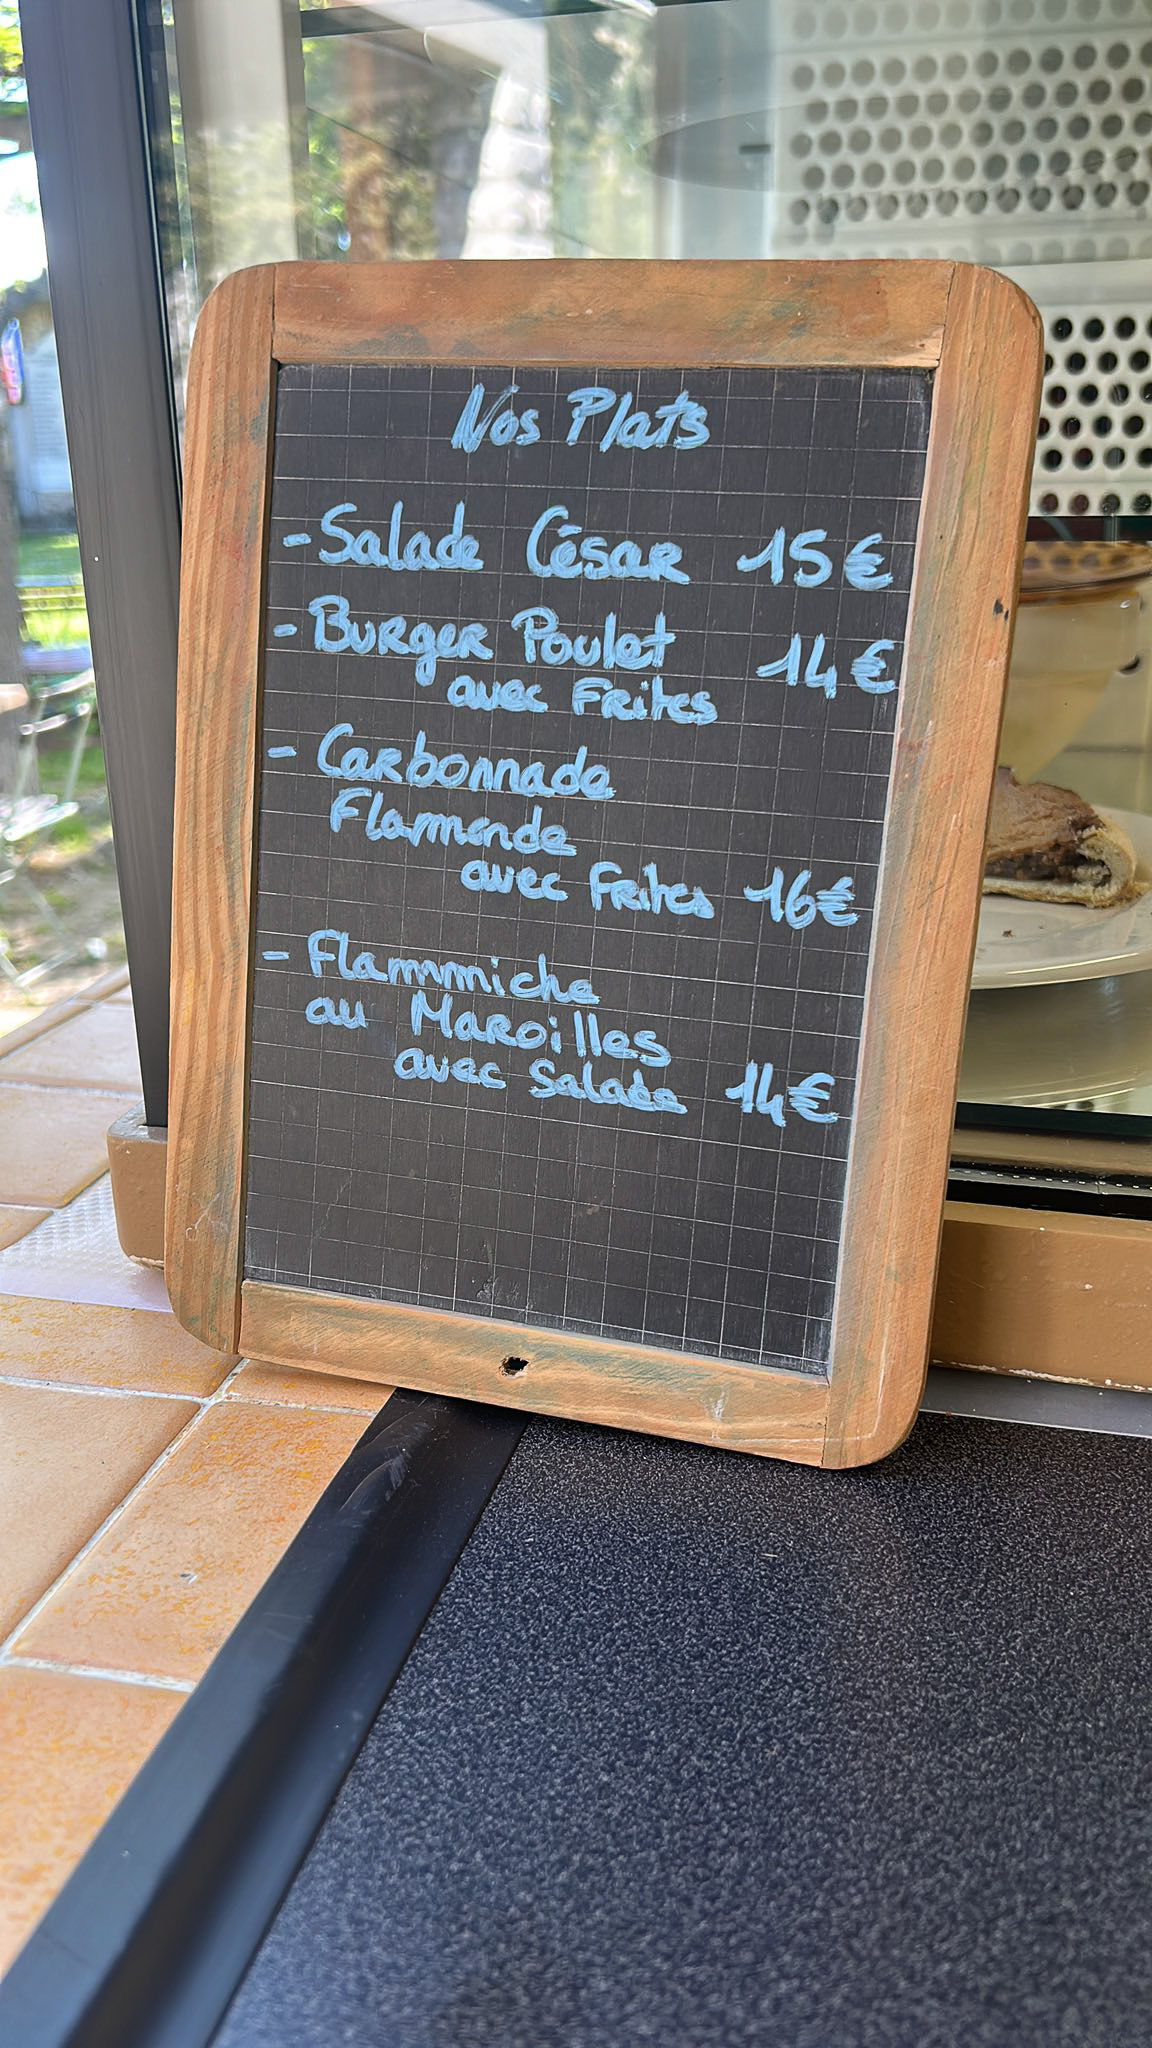 Nos Plats
- Salade César 15€
- Burger Poulet 14€
avec Frites
- Carbonnade
Flamande
avec Frites 16€
- Flammiche
au Maroilles
avec Salade 14€